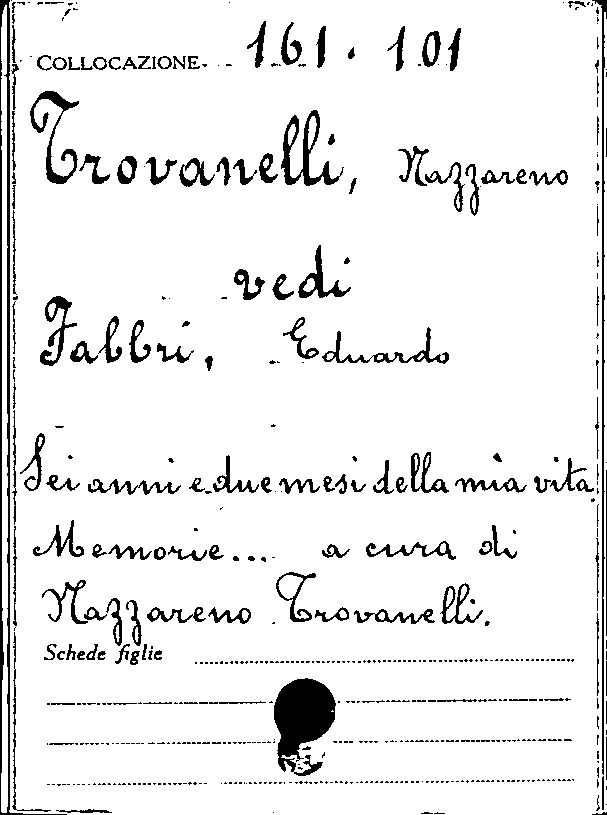 COLLOCAZIONE 161. 101
Trovanelli, Nazzareno
vedi
Fabbri, Eduardo
Sei anni e due mesi della mia vita
Memorie... a cura di
Nazzareno Trovanelli.
Schede figlie